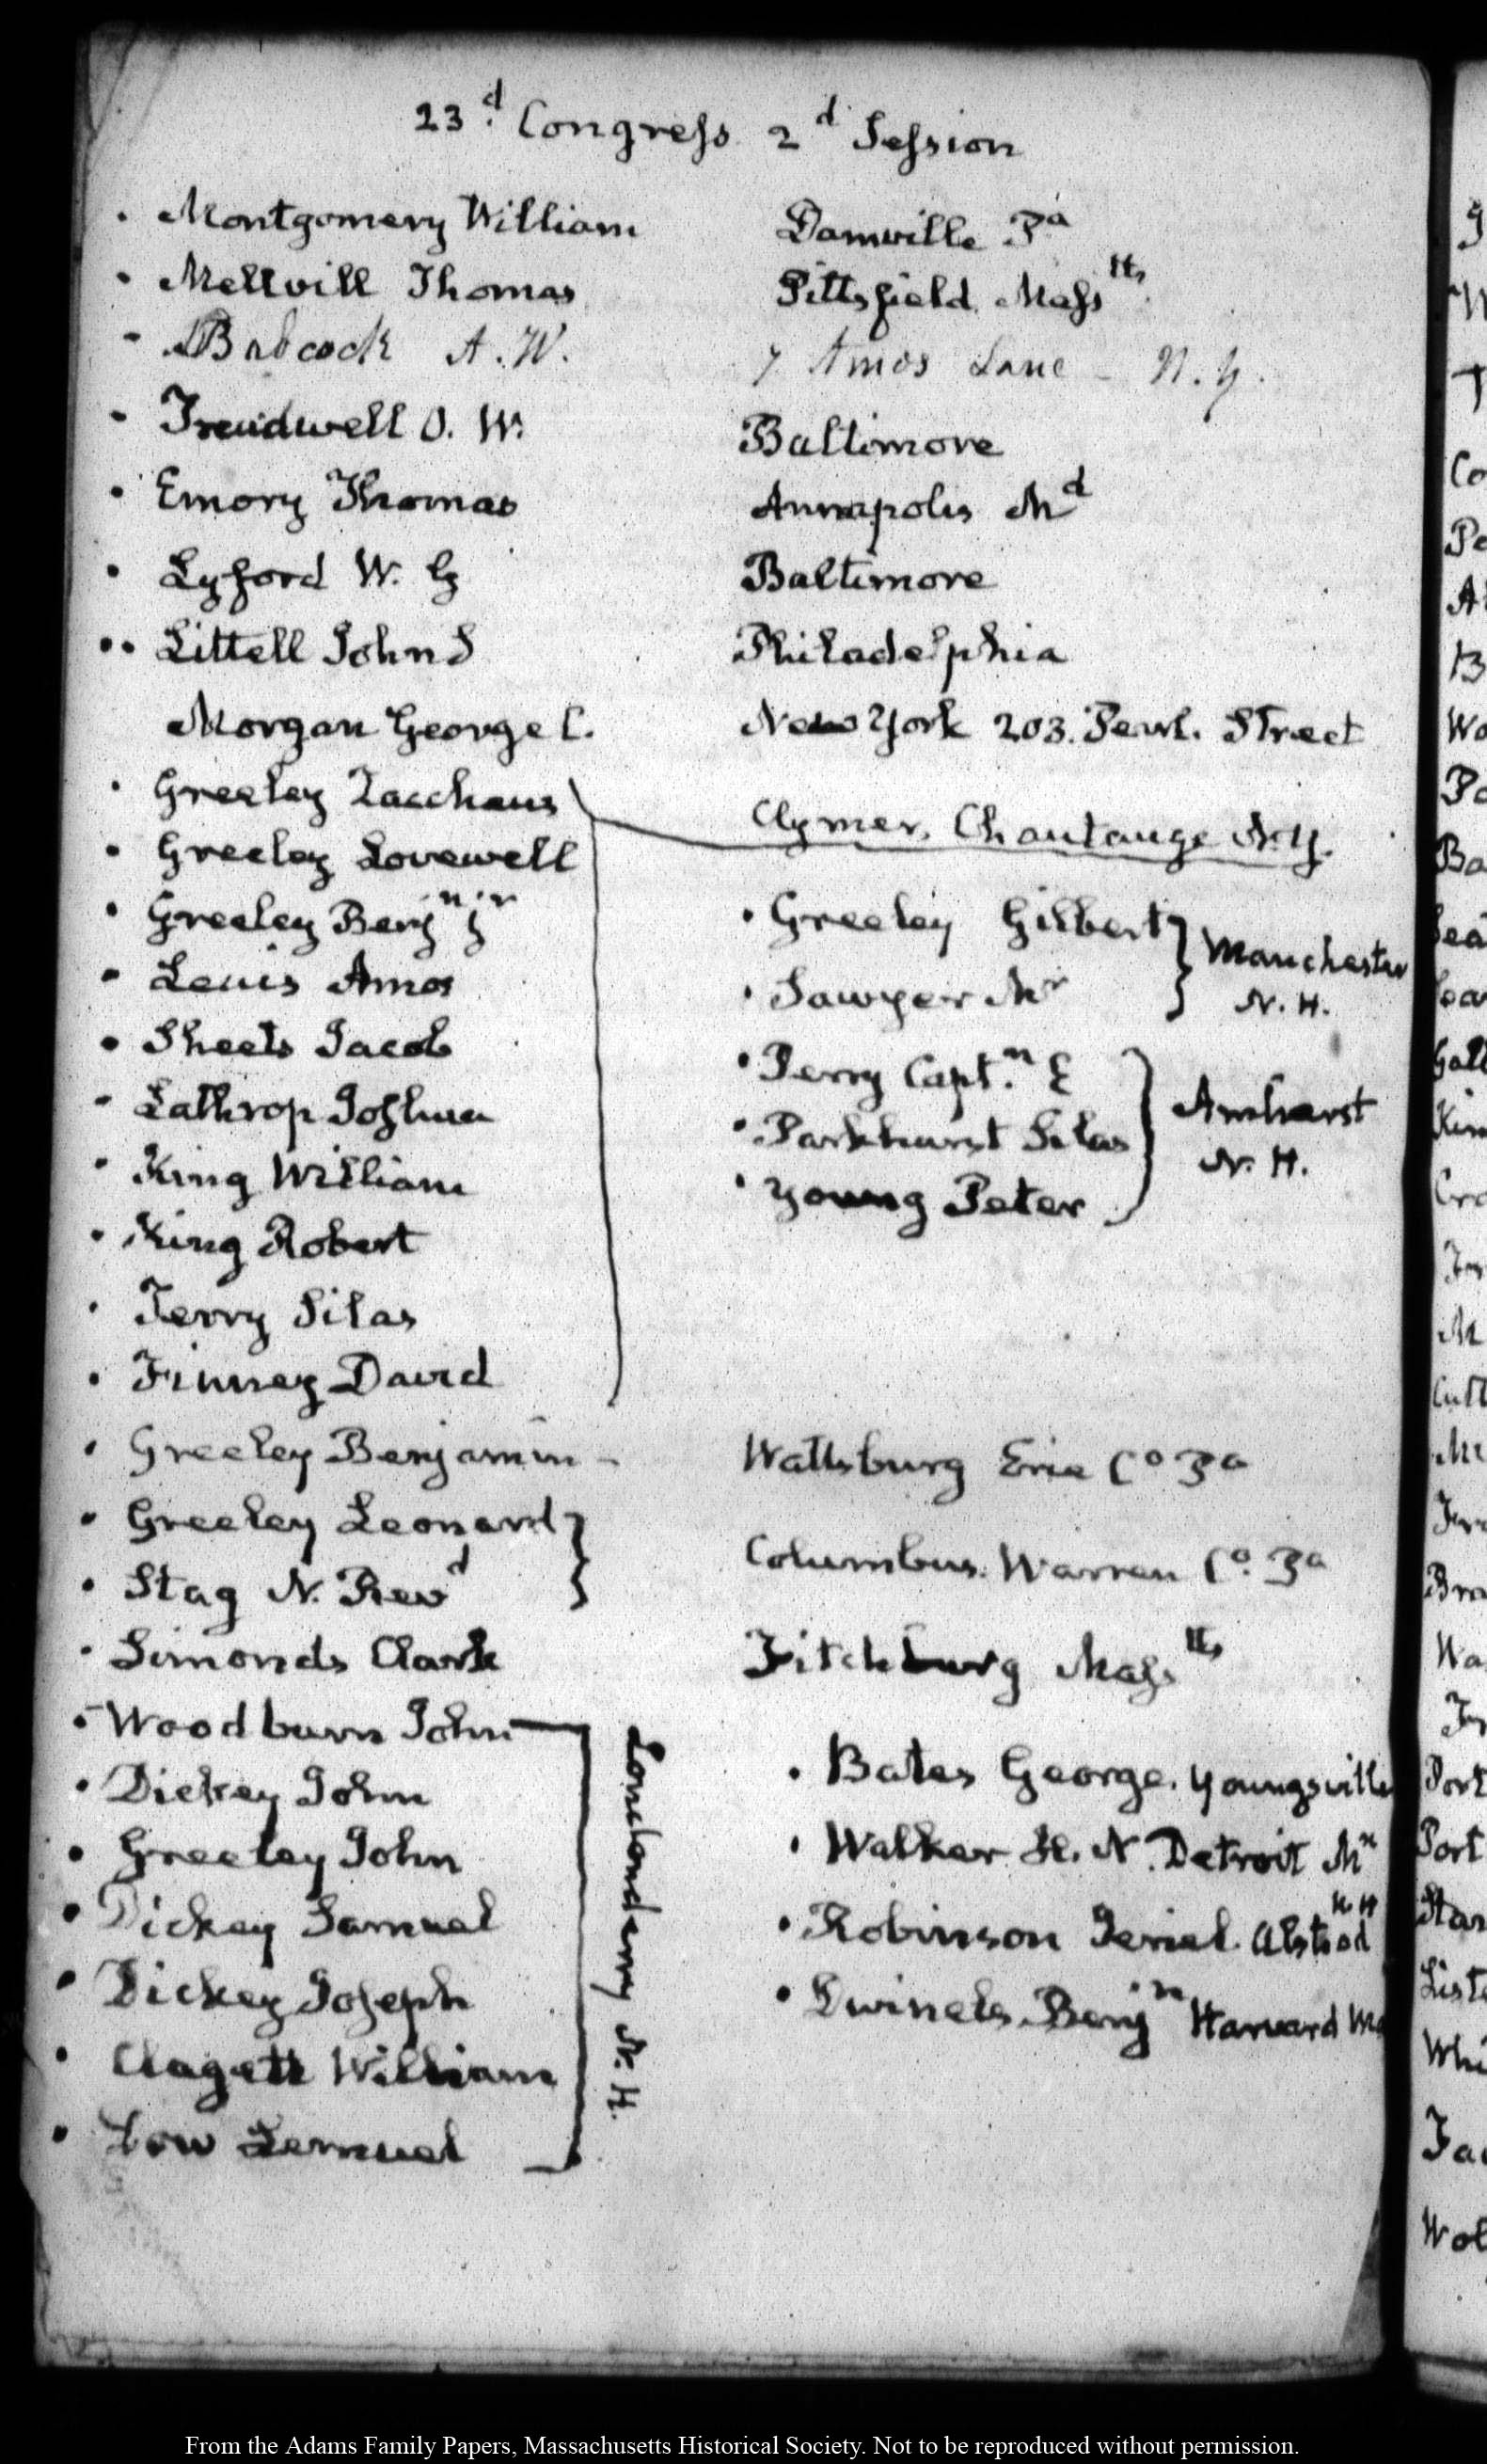 23.d Congress 2d Session
Montgomery William Danville Pa
Mellvill Thomas Pittsfield Masstts
Babcock A. W. 7 Amos Lane - N. Y.
Treadwell O. W. Baltimore
Emory Thomas Annapolis Md
Lyford W. G Baltimore
Littell John S Philadelphia
Morgan George C. New York 203. Pearl. Street
Greeley Zacchaus Clymer, Chautauge N.Y.
Greeley Lovewell
Greeley Benjn jr Greeley Gilbert Manchester
Lewis Amos Sawyer Mr N. H.
Sheets Jacob Perry Capt.n E
Lathrop Joshua Parkhurst Silas Amherst
King William Young Peter N. H.
King Robert
Terry Silas
Finney David
Greeley Benjamin - Wattsburg Erie Co Pa
Greeley Leonard Columbus. Warren Co. Pa
Stag N. Revd
Simonds Clark Fitchburg Masstts
Woodburn John
Dickey John Bates George. Youngsville
Greeley John Walker H. N. Detroit Mn
Dickey Samuel Robinson Alstead N H
Dickey Joseph Dwinels Benjn Harvard
Clagett William
Low Lemuel
Londonderry N. H.
From the Adams Family Papers, Massachusetts Historical Society. Not to be reproduced without permission.